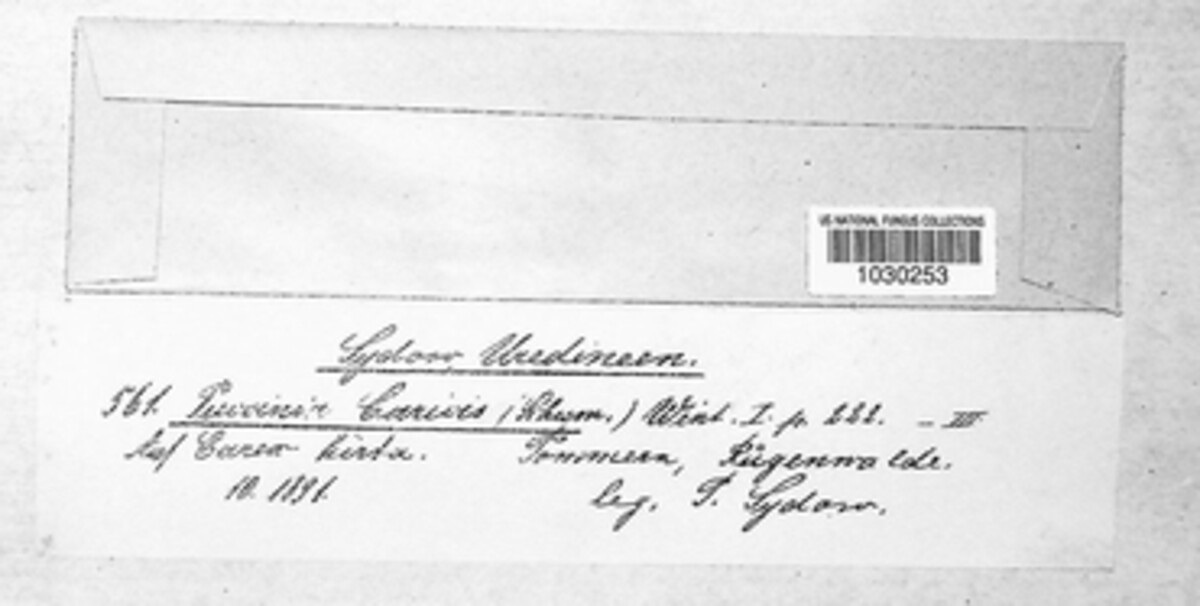 US NATIONAL FUNGUS COLLECTIONS
1030253
Sydow, Uredineen.
561. Puccinia Caricis (Schum.) Wint. I. p. 222. – III
Auf Carex hirta. Pommern, Rügenwalde.
10. 1891. leg. P. Sydow.